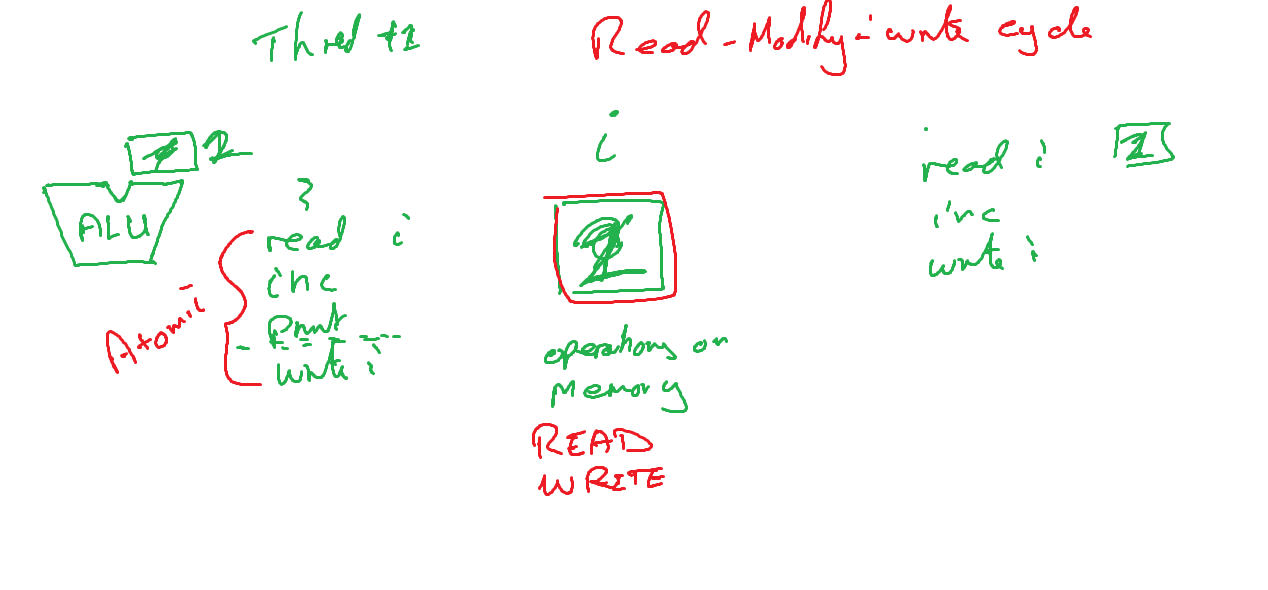 Thred #1
Read-Modify-write cycle
i
2
ALU
read i
inc
Print
write i
Atomic
operations on
Memory
READ
WRITE
read i
inc
write i